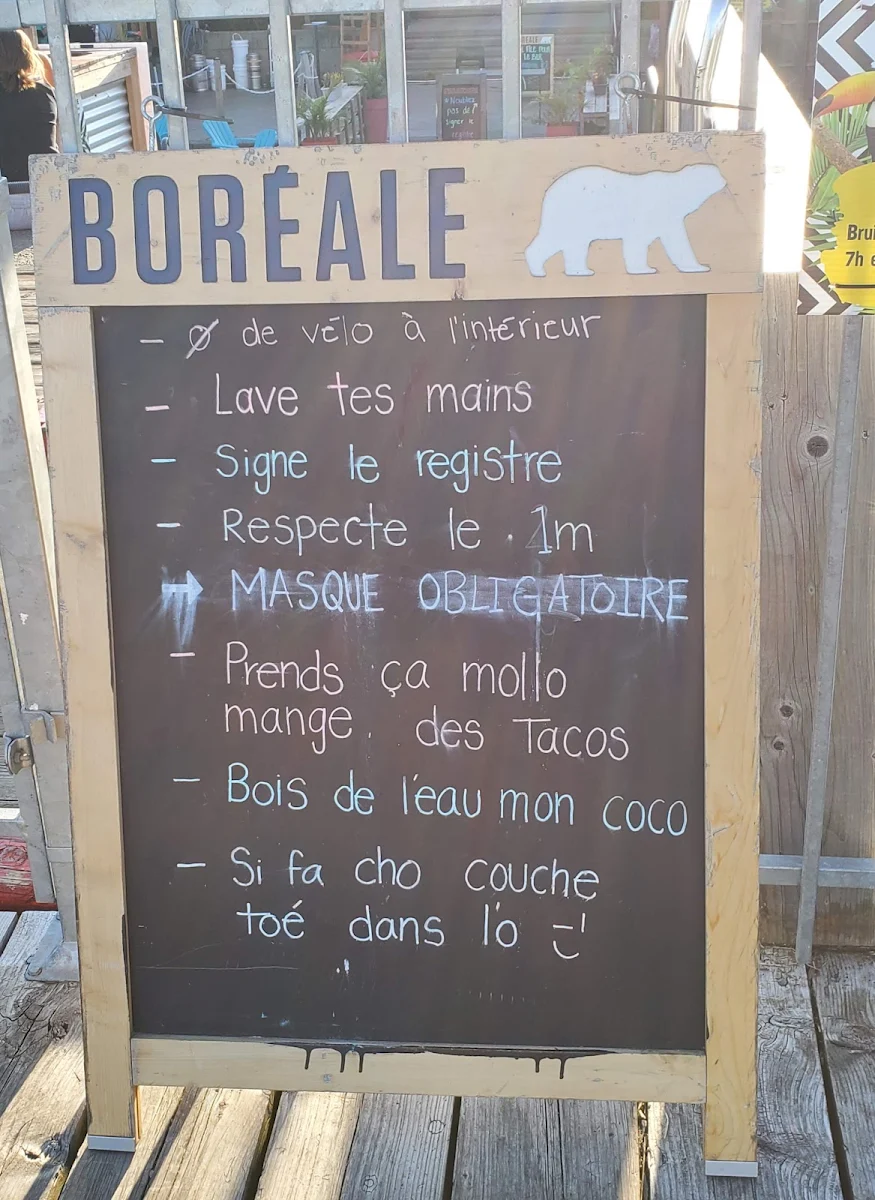 BORÉALE
- Ø de vélo à l'intérieur
- Lave tes mains
- Signe le registre
- Respecte le 1m
→ MASQUE OBLIGATOIRE
- Prends ça mollo
mange des Tacos
- Bois de l'eau mon coco
- Si fa cho couche
toé dans l'o
N'oubliez
pas de
signer le
registre
7h